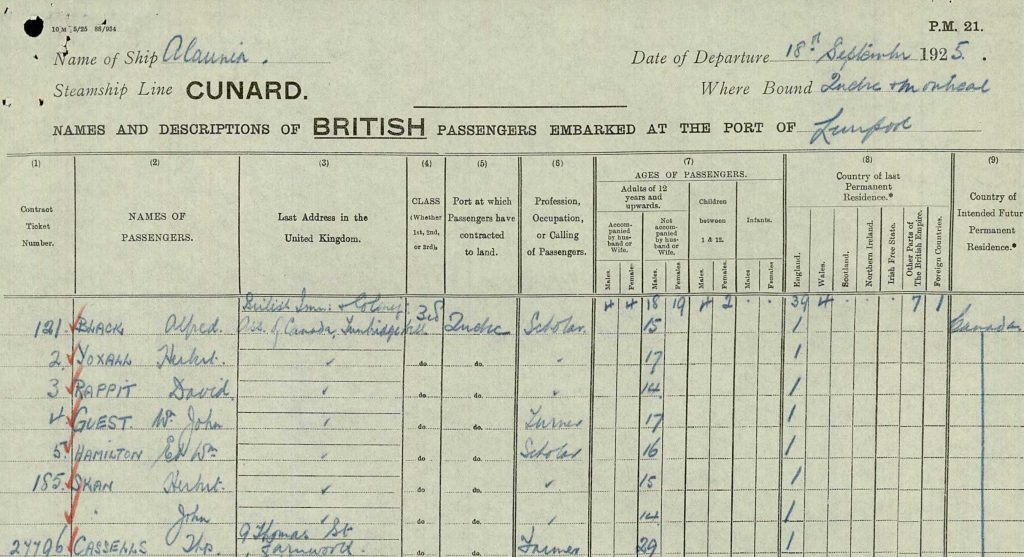 10 M 5/25 88/934
P.M. 21.
Name of Ship Alaunia.
Date of Departure 18th September 1925.
Steamship Line CUNARD.
Where Bound Quebec & Montreal
NAMES AND DESCRIPTIONS OF BRITISH PASSENGERS EMBARKED AT THE PORT OF Liverpool
(1) (2) (3) (4) (5) (6) (7) (8) (9)
Contract Ticket Number.
NAMES OF PASSENGERS.
Last Address in the United Kingdom.
CLASS (Whether 1st, 2nd, or 3rd).
Port at which Passengers have contracted to land.
Profession, Occupation, or Calling of Passengers.
AGES OF PASSENGERS.
Adults of 12 years and upwards.
Children between 1 & 12.
Infants.
Accompanied by husband or Wife.
Not accompanied by husband or Wife.
Males. Females. Males. Females. Males. Females. Males. Females.
Country of last Permanent Residence.*
England. Wales. Scotland. Northern Ireland. Irish Free State. Other Parts of The British Empire. Foreign Countries.
Country of Intended Future Permanent Residence.*
British Imm: & Colony 4 4 18 19 4 2 39 4 . . . 7 1
121. BLACK Alfred. Ass. of Canada, Tunbridge 3rd Quebec Scholar 15 1 Canada
2. YOXALL Herbert. do. do. 17 1
3 RAPPIT David. do do. 14 1
4. GUEST. Wm John do do. Turner 17 1
5. HAMILTON Ed Wm do do. Scholar 16 1
185. SKAN Herbert. do do. 15 1
John do do. 14 1
27796 CASSELLS Thos. 9 Thomas St Farnworth. do do. Farmer 29 1